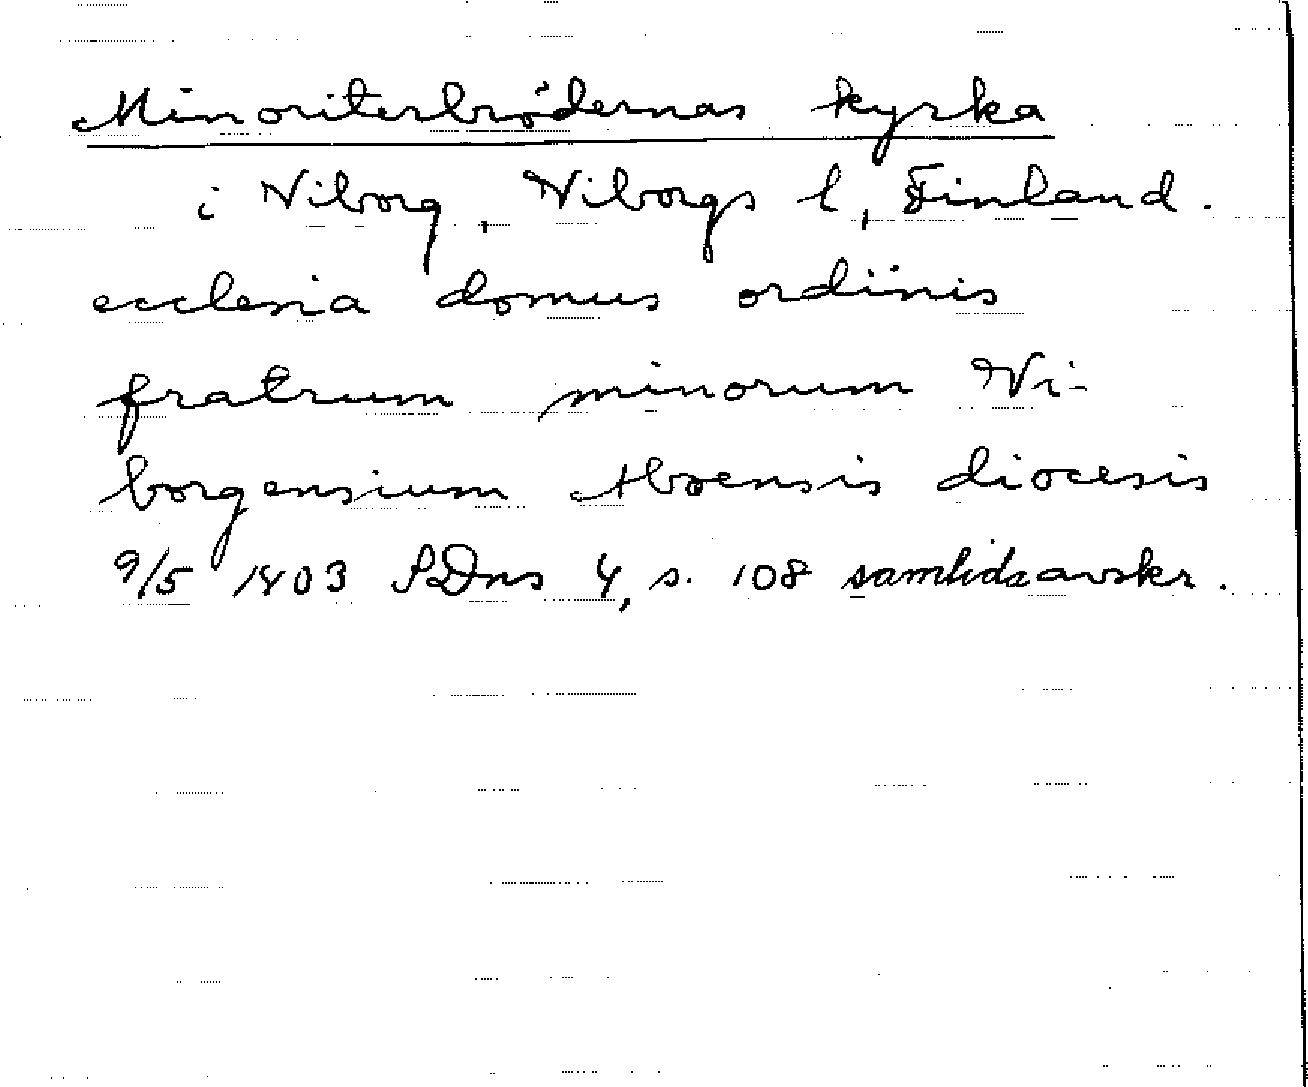 Minoriterbrödernas kyrka
i Viborg, Viborgs l, Finland.
ecclesia domus ordinis
fratrum minorum Vi-
borgensium Aboensis diocesis
9/5 1403 SDns 4, s. 108 samtida avskr.